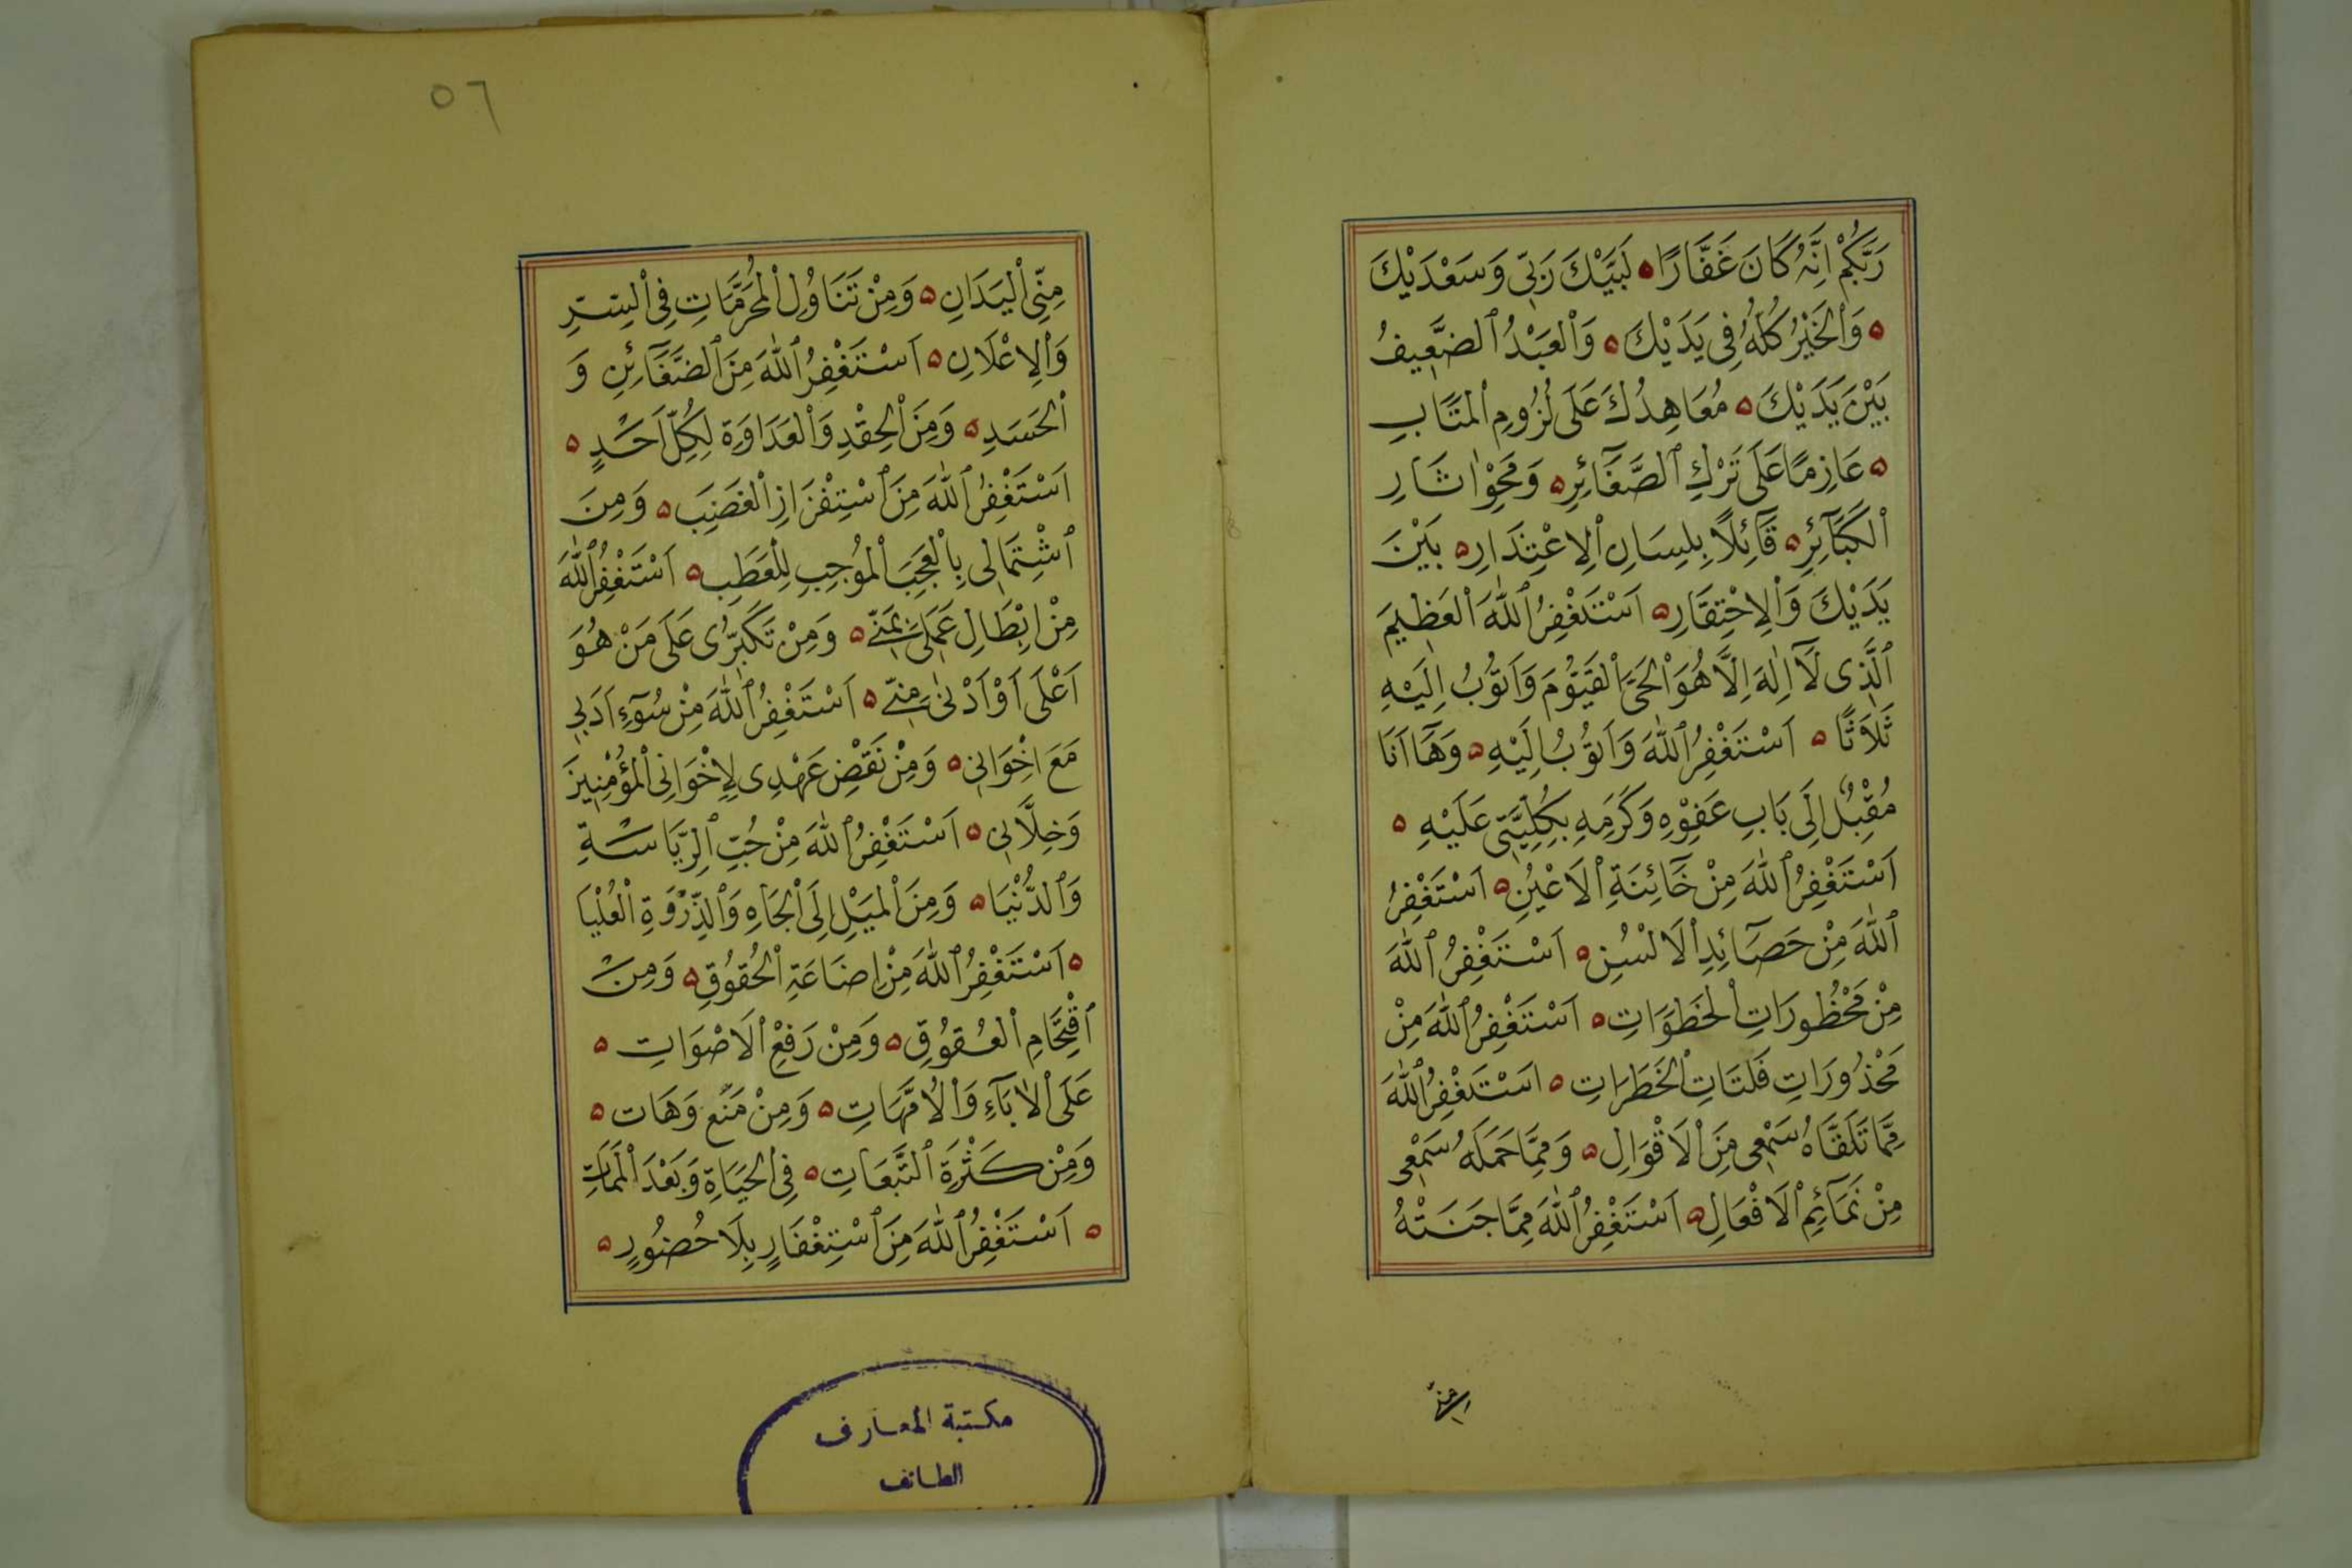 رَبَّكُمْ اِنَّهُ كَانَ غَفَّارًا ه لَبَّيْكَ رَبِّى وَسَعْدَيْكَ
ه وَٱلْخَيْرُ كُلُّهُ فِى يَدَيْكَ ه وَٱلْعَبْدُ ٱلضَّعِيفُ
بَيْنَ يَدَيْكَ ه مُعَاهِدُكَ عَلَى لُزُومِ ٱلْمَتَابِ
ه عَازِمًا عَلَى تَرْكِ ٱلصَّغَآئِرِ ه وَمَحْوِ اٰثَارِ
ٱلْكَبَآئِرِ ه قَآئِلًا بِلِسَانِ ٱلِاعْتِذَارِ ه بَيْنَ
يَدَيْكَ وَٱلِاحْتِقَارِ ه اَسْتَغْفِرُ ٱللّٰهَ ٱلْعَظِيمَ
ٱلَّذِى لَآ اِلٰهَ اِلَّا هُوَ ٱلْحَىَّ ٱلْقَيُّومَ وَاَتُوبُ اِلَيْهِ
ثَلَاثًا ه اَسْتَغْفِرُ ٱللّٰهَ وَاَتُوبُ اِلَيْهِ ه وَهَآ اَنَا
مُقْبِلٌ اِلَى بَابِ عَفْوِهِ وَكَرَمِهِ بِكُلِّيَّتِى عَلَيْهِ ه
اَسْتَغْفِرُ ٱللّٰهَ مِنْ خَآئِنَةِ ٱلْاَعْيُنِ ه اَسْتَغْفِرُ
ٱللّٰهَ مِنْ حَصَآئِدِ ٱلْاَلْسُنِ ه اَسْتَغْفِرُ ٱللّٰهَ
مِنْ مَحْظُورَاتِ ٱلْخَطَوَاتِ ه اَسْتَغْفِرُ ٱللّٰهَ مِنْ
مَحْذُورَاتِ فَلَتَاتِ ٱلْخَطَرَاتِ ه اَسْتَغْفِرُ ٱللّٰهَ
مِمَّا تَلَقَّاهُ سَمْعِى مِنَ ٱلْاَقْوَالِ ه وَمِمَّا حَمَلَهُ سَمْعِى
مِنْ نَمَآئِمِ ٱلْاَفْعَالِ ه اَسْتَغْفِرُ ٱللّٰهَ مِمَّا جَنَتْهُ
منى
٥٦
مِنِّى ٱلْيَدَانِ ه وَمِنْ تَنَاوُلِ ٱلْمُحَرَّمَاتِ فِى ٱلسِّرِّ
وَٱلْاِعْلَانِ ه اَسْتَغْفِرُ ٱللّٰهَ مِنَ ٱلضَّغَآئِنِ وَ
ٱلْحَسَدِ ه وَمِنَ ٱلْحِقْدِ وَٱلْعَدَاوَةِ لِكُلِّ اَحَدٍ ه
اَسْتَغْفِرُ ٱللّٰهَ مِنَ ٱسْتِفْزَازِ ٱلْغَضَبِ ه وَمِنَ
ٱشْتِمَالِى بِٱلْعُجْبِ ٱلْمُوجِبِ لِلْعَطَبِ ه اَسْتَغْفِرُ ٱللّٰهَ
مِنْ اِبْطَالِ عَمَلِى بِمَنِّى ه وَمِنْ تَكَبُّرِى عَلَى مَنْ هُوَ
اَعْلَى اَوْ اَدْنٰى مِنِّى ه اَسْتَغْفِرُ ٱللّٰهَ مِنْ سُوٓءِ اَدَبِى
مَعَ اِخْوَانِى ه وَمِنْ نَقْضِ عَهْدِى لِاِخْوَانِى ٱلْمُؤْمِنِينَ
وَخِلَّانِى ه اَسْتَغْفِرُ ٱللّٰهَ مِنْ حُبِّ ٱلرِّيَاسَةِ
وَٱلدُّنْيَا ه وَمِنَ ٱلْمَيْلِ اِلَى ٱلْجَاهِ وَٱلذِّرْوَةِ ٱلْعُلْيَا
ه اَسْتَغْفِرُ ٱللّٰهَ مِنْ اِضَاعَةِ ٱلْحُقُوقِ ه وَمِنَ
ٱقْتِحَامِ ٱلْعُقُوقِ ه وَمِنْ رَفْعِ ٱلْاَصْوَاتِ ه
عَلَى ٱلْاٰبَآءِ وَٱلْاُمَّهَاتِ ه وَمِنْ مَنْعٍ وَهَات ه
وَمِنْ كَثْرَةِ ٱلتَّبِعَاتِ ه فِى ٱلْحَيَاةِ وَبَعْدَ ٱلْمَمَاتِ
ه اَسْتَغْفِرُ ٱللّٰهَ مِنَ ٱسْتِغْفَارٍ بِلَا حُضُورٍ ه
مكتبة المعارف
الطائف